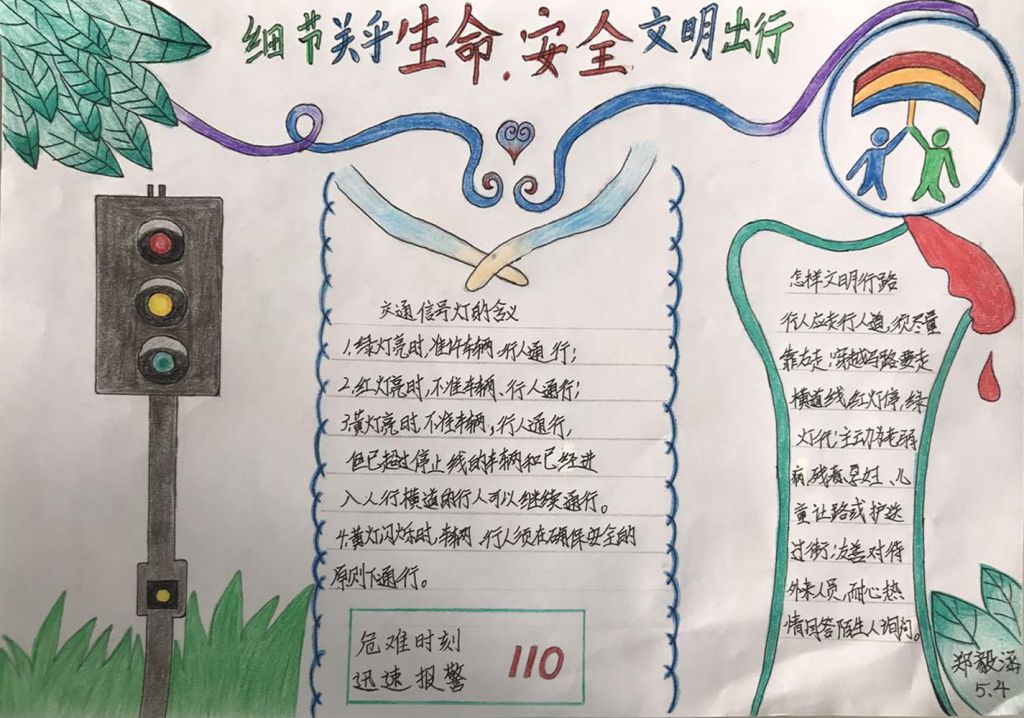 细节关乎生命.安全文明出行
交通信号灯的含义
1.绿灯亮时,准许车辆、行人通行;
2.红灯亮时,不准车辆、行人通行;
3.黄灯亮时,不准车辆,行人通行,
但已超过停止线的车辆和已经进
入人行横道的行人可以继续通行。
4.黄灯闪烁时,车辆、行人须在确保安全的
原则下通行。
危难时刻
迅速报警
110
怎样文明行路
行人应走行人道,须尽量
靠右走,穿越马路要走
横道线,红灯停,绿
灯行;主动为老弱
病、残者、孕妇、儿
童让路或护送
过街;友善对待
外来人员,耐心热
情回答陌生人询问。
郑毅涵
5.4